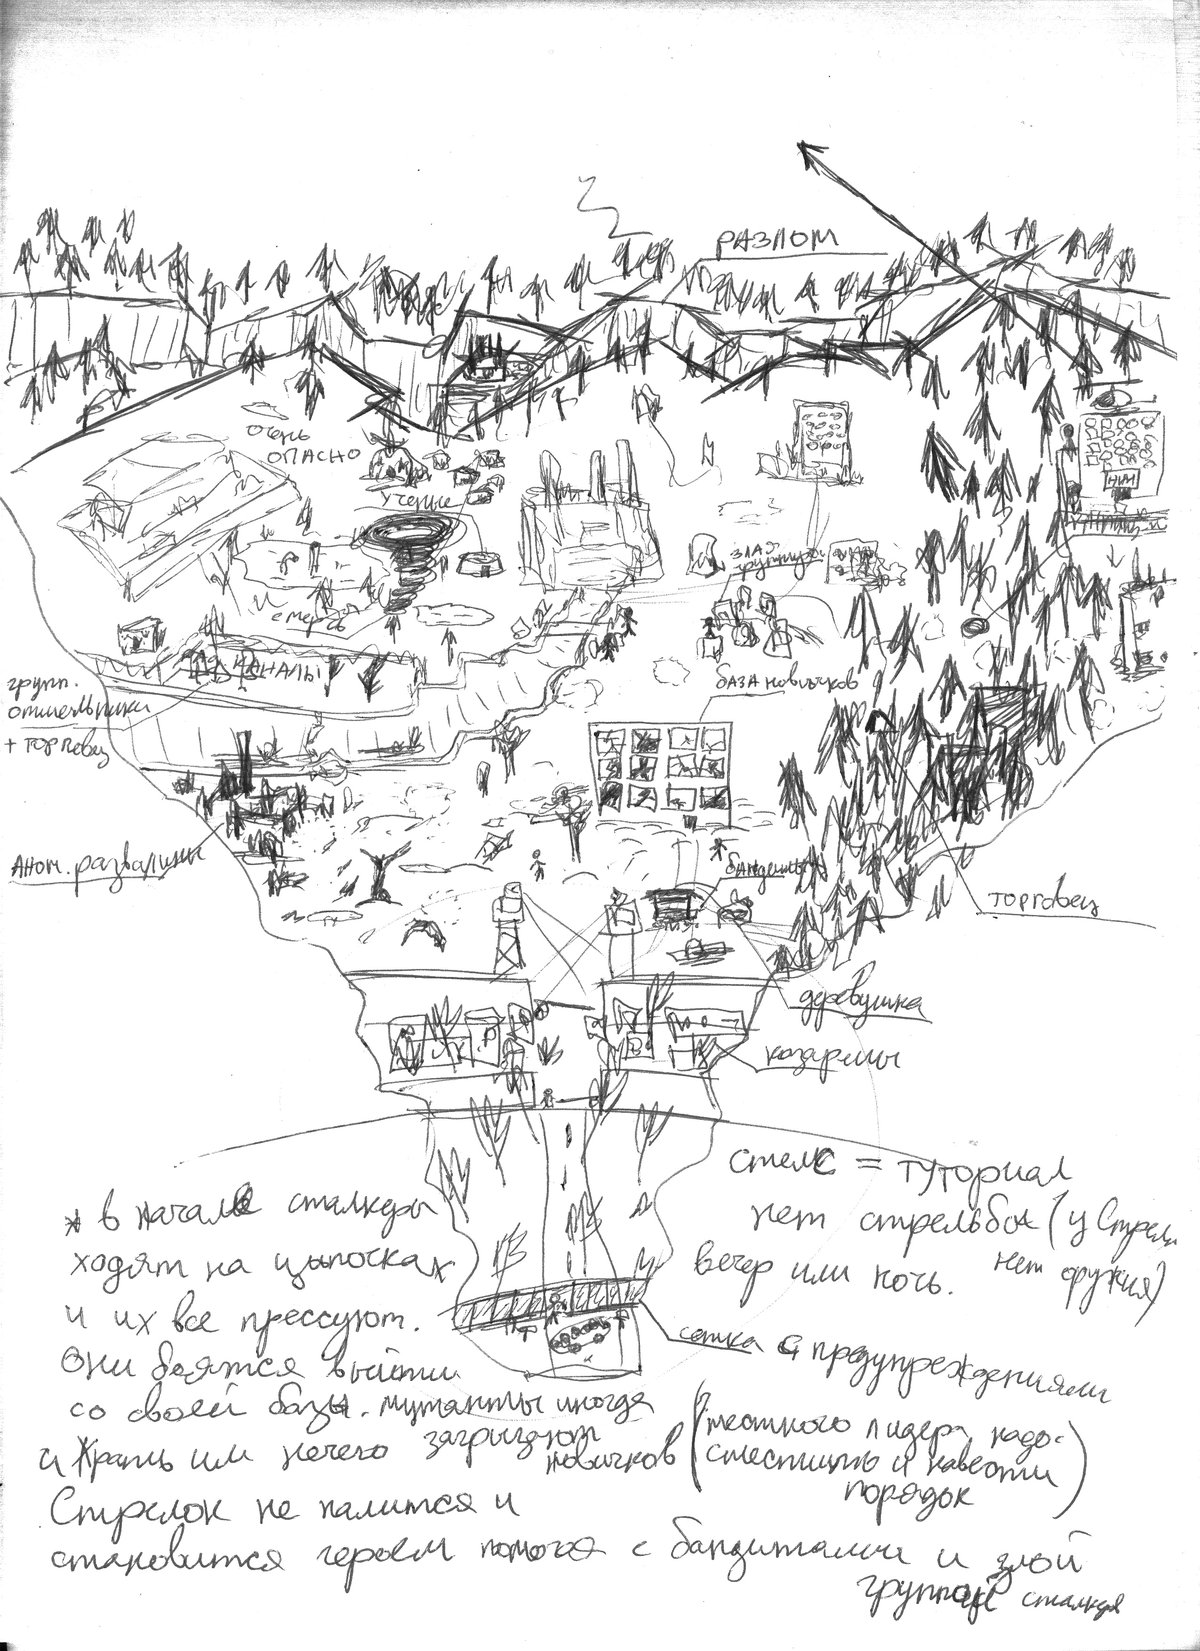 РАЗЛОМ
очень
ОПАСНО
ученые
НИИ
злая
группир
смерч
КАНАЛЫ
групп.
отшельники
+ торговец
база новичков
Аном. развалины
бандиты
торговец
деревушка
казармы
стелС = туториал
нет стрельбы (у Стрел
нет оружия)
вечер или ночь.
сетка с предупреждениями
* в начале сталкеры
ходят на цыпочках
и их все прессуют.
Они боятся выйти
со своей базы. мутанты иногда
загрызают
новичков
и Жрать им нечего
(местного лидера надо
сместить и навести
порядок)
Стрелок не палится и
становится героем помогая с бандитами и злой
группой сталкер